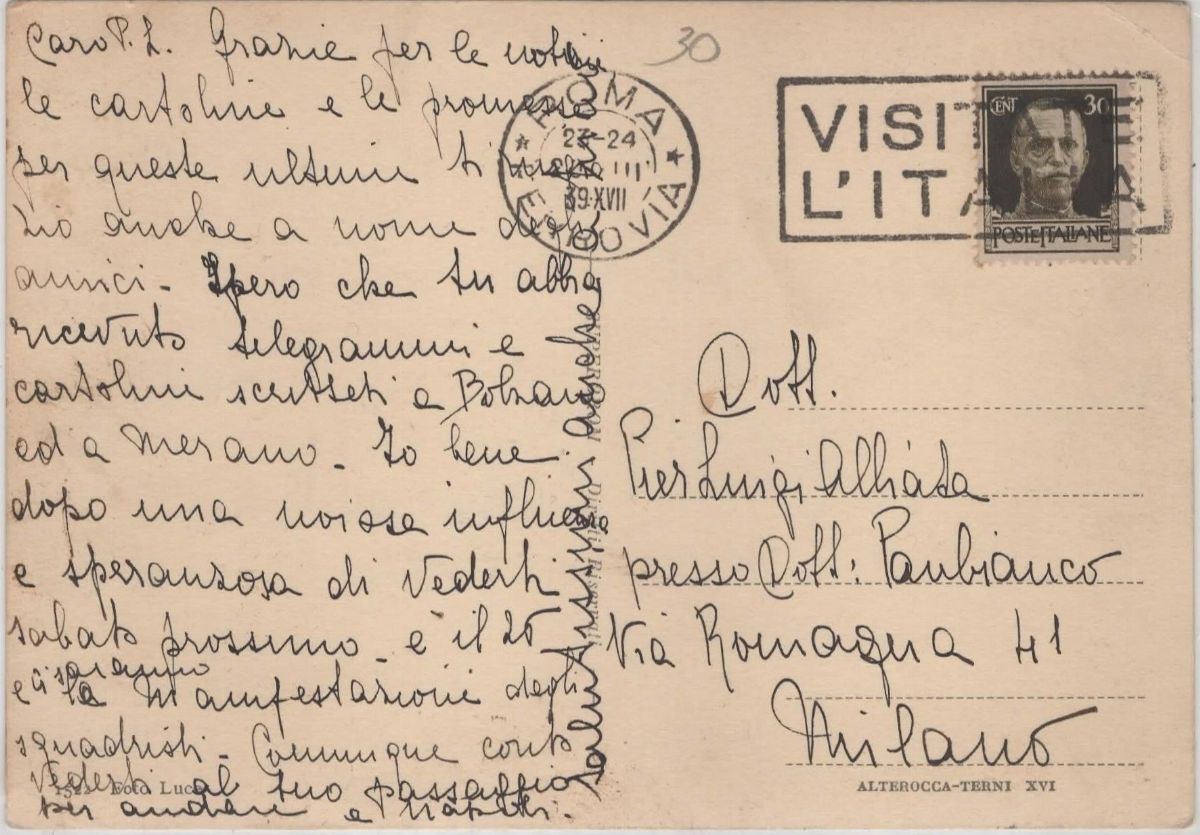 Caro P.L. Grazie per le notizie,
le cartoline e le promesse
per queste ultime ti
zio anche a nome degli
amici - Spero che tu abbia
ricevuto telegrammi e
cartoline scritteti a Bolzano
ed a Merano - Io bene
dopo una noiosa influenza
e speranzosa di vederti
sabato prossimo - è il 26
e ci saranno
le manifestazioni degli
squadristi - Comunque conto
vederti al tuo passaggio
per andare a Napoli.
salutissimi anche
30
ROMA
FERROVIA
23-24
III
39·XVII
VISITATE
L'ITALIA
CENT 30
POSTE ITALIANE
Dott.
Pier Luigi Alliata
presso Dott: Panbianco
Via Romagna 41
Milano
1522 Foto Luce
ALTEROCCA-TERNI XVI